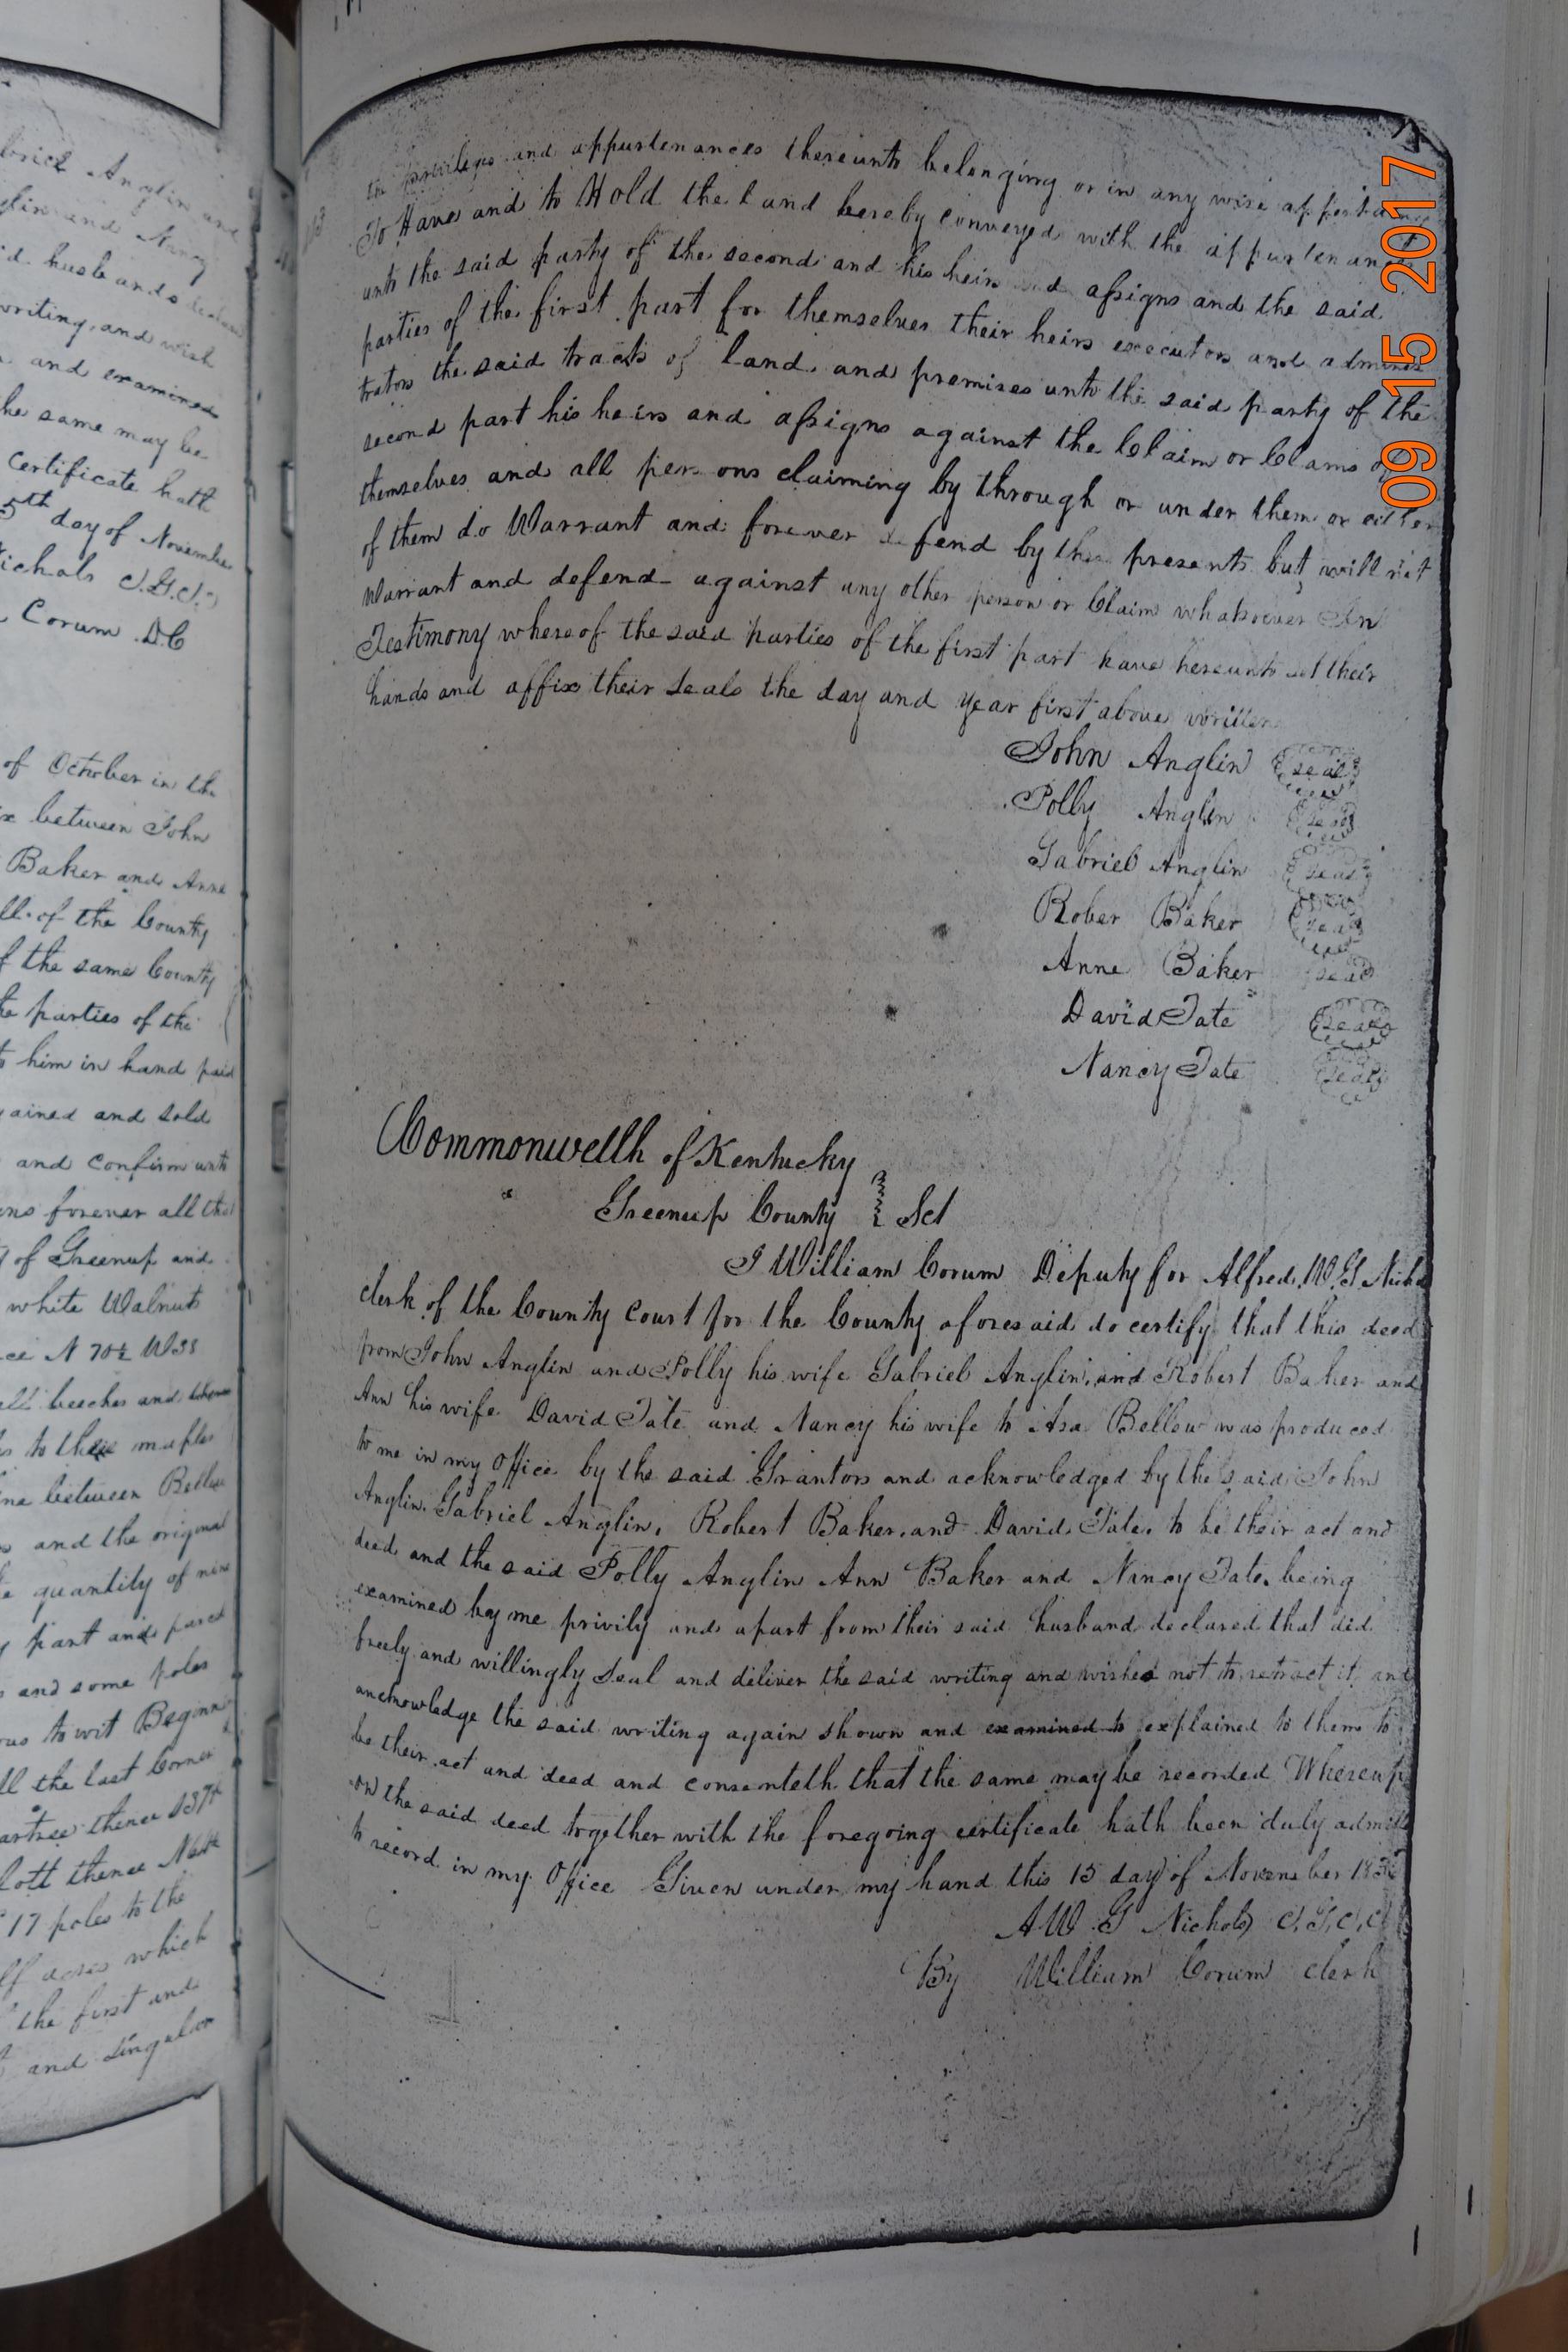 brick Anglin and
glin and Nancy
d husbands
writing and wish
and examined
he same may be
Certificate hath
5th day of November
Nichols C.G.C.C
Corum D.C
of October in the
x between John
Baker and Anne
ll of the County
f the same County
he parties of the
to him in hand paid
gained and sold
and confirm unto
ns forever all that
y of Greenup and
white Walnut
ce N 70½ W 38
all beeches and
s to three maples
ine between Bellew
and the original
e quantity of nine
y part and parcel
s and some poles
ous to wit Beginn
ll the last Corner
thence S37
lott thence
17 poles to the
lf acres which
the first and
and Singular
the privileges and appurtenances thereunto belonging or in any wise appertaining
To Have and to Hold the Land hereby conveyed with the appurtenances
unto the said party of the second and his heirs and assigns and the said
parties of the first part for themselves their heirs executors and adminis
trators the said tracts of Land and premises unto the said party of the
second part his heirs and assigns against the Claim or Clams of
themselves and all persons claiming by through or under them or either
of them do Warrant and forever defend by these presents but will not
Warrant and defend against any other person or Claim whatsoever In
Testimony whereof the said parties of the first part have hereunto set their
hands and affix their Seals the day and year first above written
John Anglin seal
Polly Anglin seal
Gabriel Anglin seal
Rober Baker seal
Anne Baker seal
David Tate seal
Nancy Tate seal
Commonwellh of Kentucky
Greenup County } Sct
I William Corum Deputy for Alfred W G Nichols
clerk of the County Court for the County aforesaid do certify that this deed
from John Anglin and Polly his wife Gabriel Anglin, and Robert Baker and
Ann his wife David Tate and Nancy his wife to Asa Bellew was produced
to me in my Office by the said Grantors and acknowledged by the said John
Anglin, Gabriel Anglin, Robert Baker, and David Tate, to be their act and
deed and the said Polly Anglin Ann Baker and Nancy Tate, being
examined by me privily and apart from their said husband declared that did
freely and willingly Seal and deliver the said writing and wished not to retract it and
acknowledge the said writing again shown and examined to explained to them to
be their act and deed and consenteth that the same may be recorded Whereup
on the said deed together with the foregoing certificate hath been duly admitt
to record in my Office Given under my hand this 15 day of November 183
A W G Nichols C.G.C.C
By William Corum clerk
09 15 2017